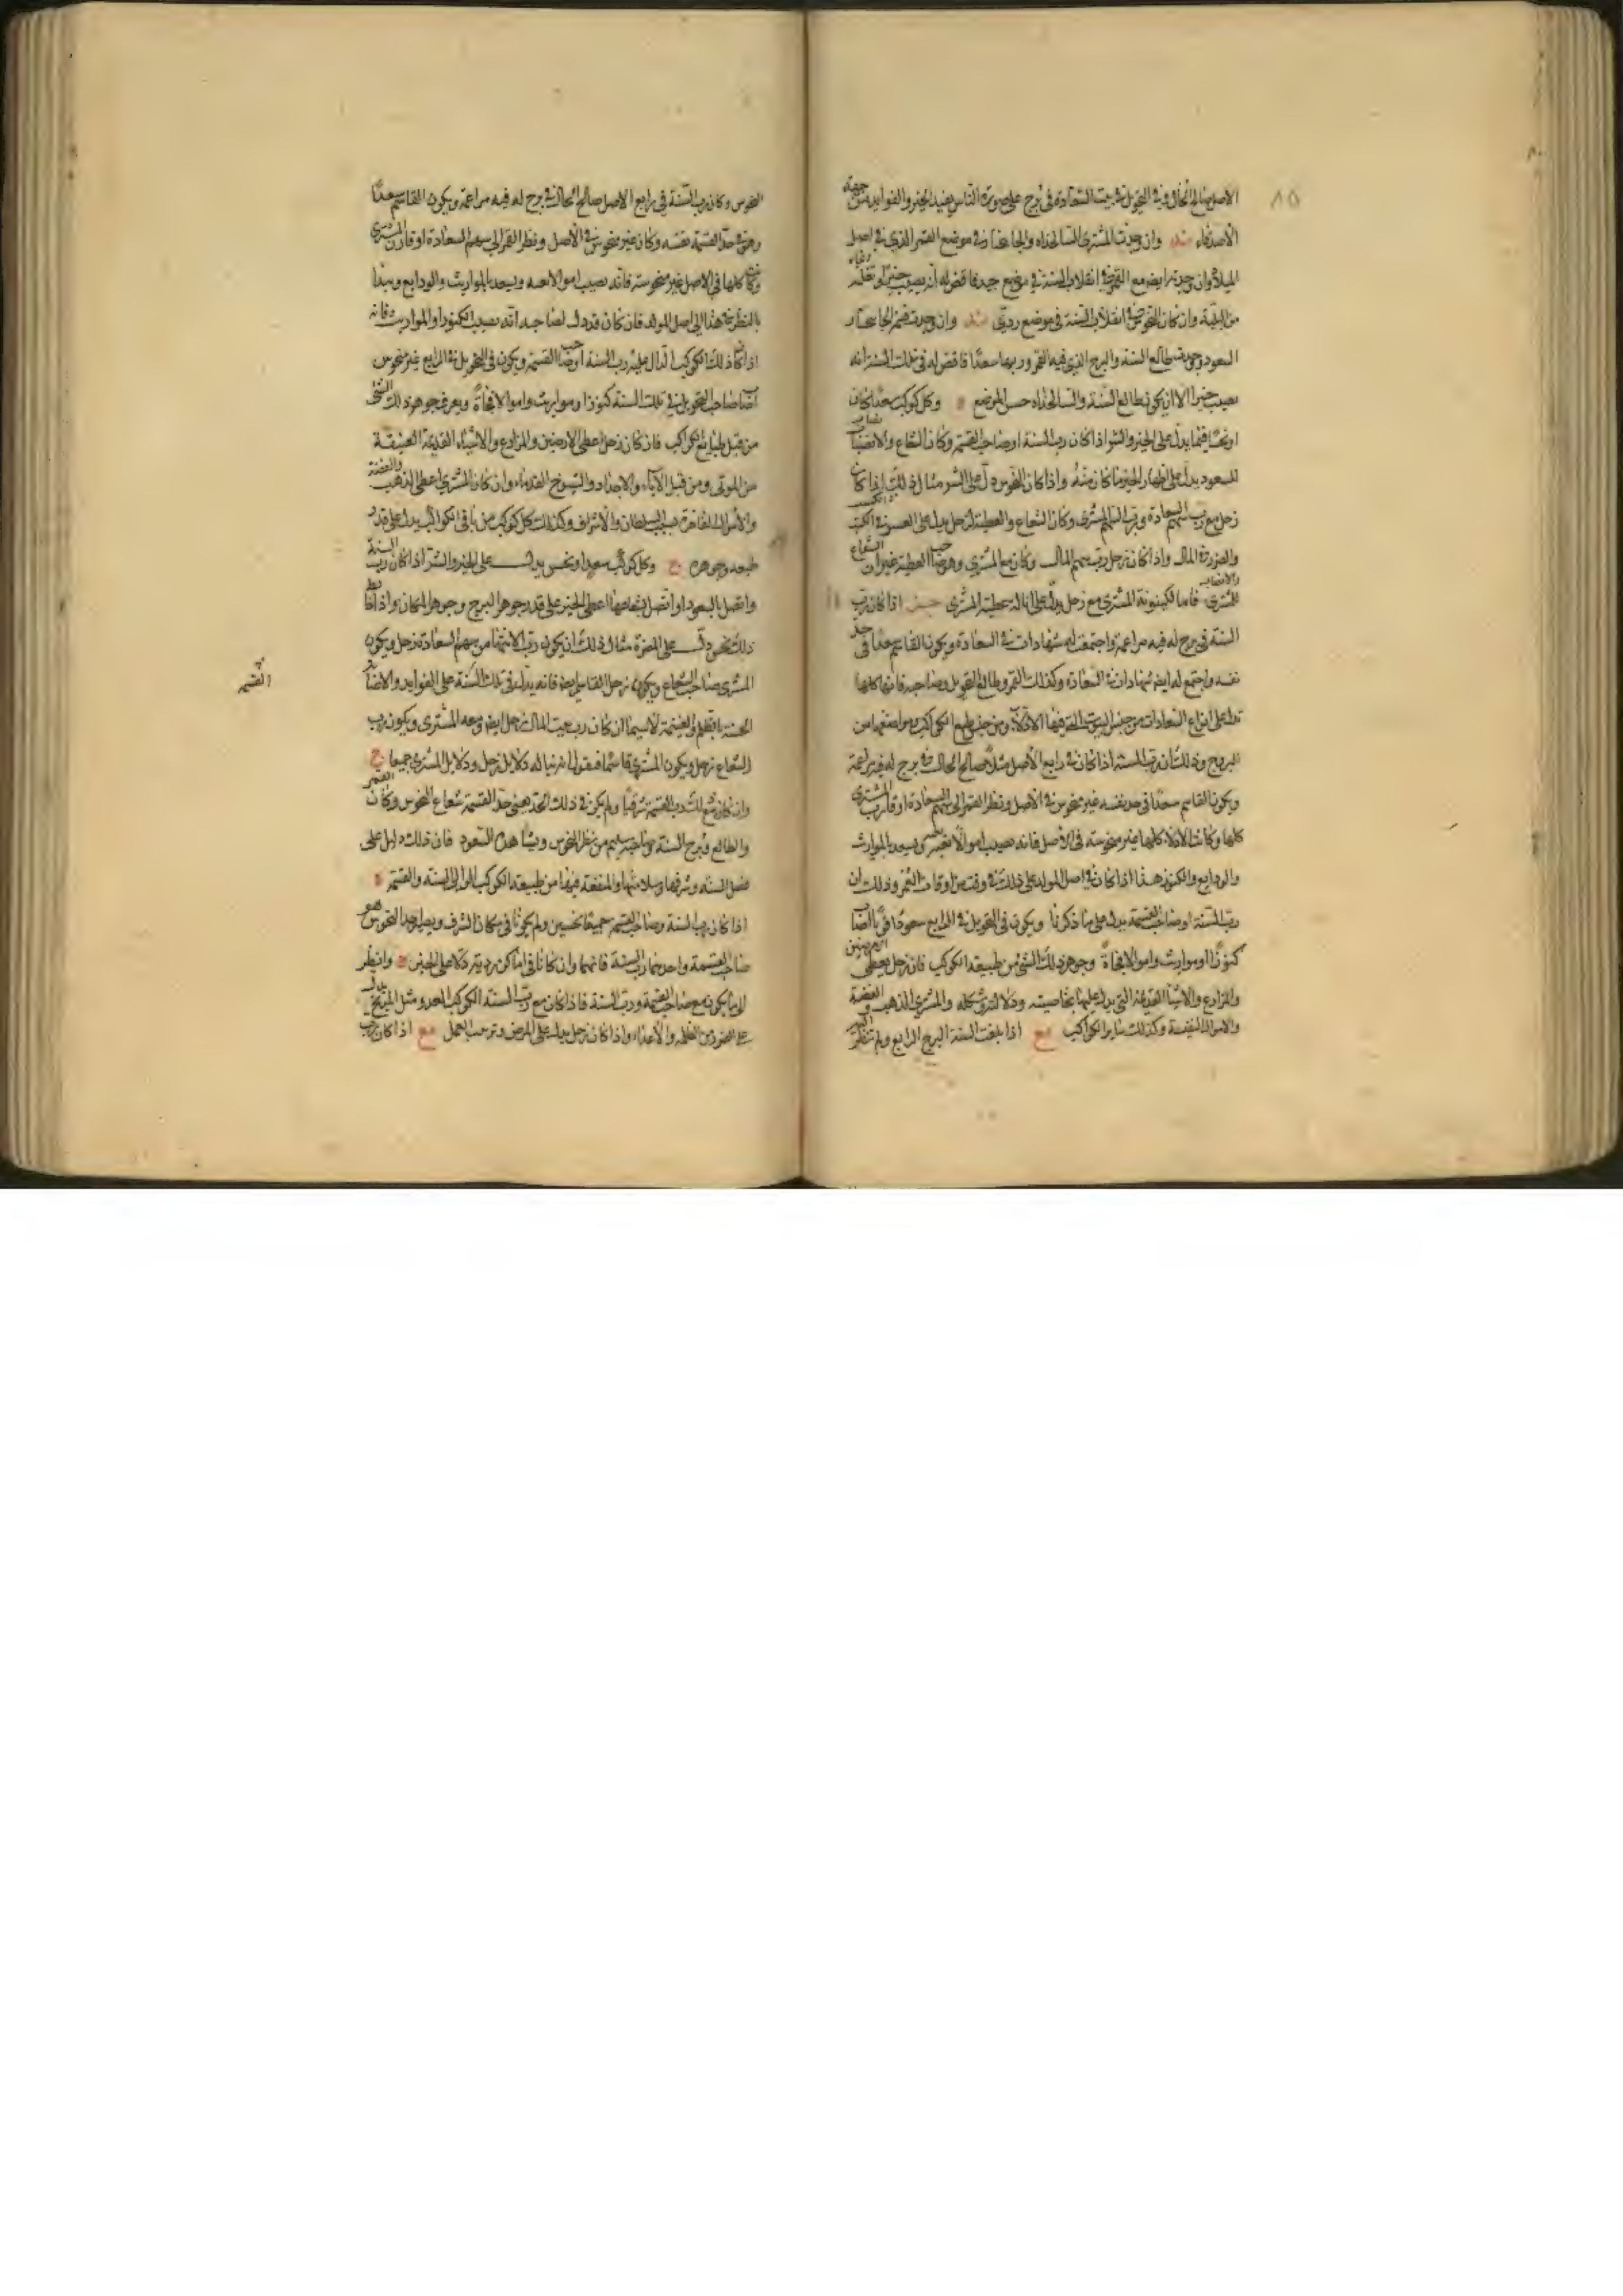 ٨٥
الاصل صالح الحال وفي التحويل في بيت السعادة في برج على صورة الناس يفيد الخير والفوايد من جهة
الأصدقاء وان وجدت المشتري في موضع القمر الذي في اصل
الميلاد وان وجدته ايضا مع القمر في انقلاب السنة في موضع جيد فاقض له انه يصيب خيرا
من البلية وان كان النحوس في انقلاب السنة في موضع ردي وان وجدت
السعود طالع السنة والبرج الذي فيه القمر وربهما سعدا فاقض له في تلك السنة انه
يصيب خيرا الا ان يكون طالع السنة حسن الموضع وكل كوكب سعدا كان
او نحسا فانما يدل على الخير والشر اذا كان رب السنة او صاحب القسمة وكان الشعاع والاتصال
للسعود يدل على اظهار الخير ما كان منه واذا كان للنحوس دل على الشر مثال ذلك اذا كان
زحل مع رب سهم السعادة ورب السهم المشتري وكان الشعاع والعطية لزحل يدل على العسر في الكسب
والضرورة المال واذا كان زحل رب سهم المال وكان مع المشتري وهو صاحب العطية غير ان الشعاع والاتصال
للمشتري فاما لكينونة المشتري مع زحل يدل على انالة عطية المشتري اذا كان رب
السنة في برج له فيه مزاعمة واجتمعت له شهادات في السعادة ويكون القاسم سعدا في حد
نفسه واجتمع له ايضا شهادات في السعادة وكذلك القمر وطالع التحويل وصاحبه فانها كلها
تدل على انواع السعادات من جنس البيوت التي فيها الادلاء ومن جنس طبع الكواكب مواضعها من
البروج وذلك ان رب السنة اذا كان في رابع الأصل مثلا صالح الحال في برج له فيه مزاعمة
ويكون القاسم سعدا في حد نفسه غير منحوس في الاصل ونظر القمر الى سهم السعادة او قارن المشتري
كلها وكانت الادلاء كلها غير منحوسة في الاصل فانه يصيب اموالا نفيسة ويسعد بالمواريث
والودايع والكنوز هذا اذا كان في اصل المولد على ذلك في وقت من اوقات العمر وذلك ان
رب السنة او صاحب القسمة يدل على ما ذكرنا ويكون في التحويل في الرابع سعودا قويا اصاب
كنوزا او مواريث واموالا فجاة وجوهر ذلك الشي من طبيعة الكوكب فان زحل يعطي الارضين
والمزارع والاشيا القديمة التي يدل عليها بخاصيته ودلالته وشكله والمشتري الذهب والفضة
والاموال النفيسة وكذلك ساير الكواكب اذا بلغت السنة البرج الرابع ولم تنظر اليه
النحوس وكان رب السنة في رابع الاصل صالح الحال في برج له فيه مزاعمة ويكون القاسم سعدا
وهو في حد القسمة نفسه وكان غير منحوس في الأصل ونظر القمر الى سهم السعادة او قارن المشتري
وكانت كلها في الاصل غير منحوسة فانه يصيب اموالا نفيسة ويسعد بالمواريث والودايع ويبدا
بالنظر في هذا الى اصل المولد فان كان قد دل لصاحبه انه يصيب الكنوز او المواريث فانه
اذا كان ذلك الكوكب الدال عليه رب السنة او صاحب القسمة ويكون في التحويل في الرابع غير منحوس
اصاب صاحب التحويل في تلك السنة كنوزا ومواريث واموالا فجاة ويعرف جوهر ذلك الشي
من قبل طبايع الكواكب فان كان زحل اعطى الارضين والمزارع والاشياء القديمة العتيقة
من الموتى ومن قبل الآباء والاجداد والشيوخ القدماء وان كان المشتري اعطى الذهب والفضة
والأموال الفاخرة بسبب السلطان والاشراف وكذلك كل كوكب من باقي الكواكب يدل على قدر
طبعه وجوهره وكل كوكب سعد او نحس يدل على الخير والشر اذا كان رب السنة
واتصل بالسعود او اتصل بشعاعها اعطى الخير على قدر جوهر البرج وجوهر المكان واذا اعطى
ذلك نحوس دل على المضرة مثال ذلك ان يكون رب الانتها من سهم السعادة زحل ويكون
المشتري صاحب الشعاع ويكون زحل القاسم ايضا فانه يدل في تلك السنة على الفوايد والاصابة
الحسنة بالظلم والغنيمة لا سيما ان كان رب بيت المال زحل ايضا ومعه المشتري ويكون رب
الشعاع زحل ويكون المشتري قاسما فيقول انه دلايل زحل ودلايل المشتري جميعا
وان كان مع ذلك رب القسمة شرقيا ولم يكن في ذلك الحد يعني حد القسمة شعاع النحوس وكان القمر
والطالع وبرج السنة وصاحبه سليم من نظر النحوس ويشاهده السعود فان ذلك دليل على
فضل السنة وشرفها وسلامتها والمنفعة فيها من طبيعة الكوكب الوالي السنة والقسمة
اذا كان رب السنة وصاحب القسمة جميعا نحسين ولم يكونا في مكان الشرف ويصير احد النحوس هو
صاحب القسمة واحدهما رب السنة فانهما وان كانا في اماكن ردية دلا على الخير وانظر
الى ما يكون مع صاحب القسمة ورب السنة فاذا كان مع رب السنة الكوكب العدو مثل المريخ يدل
على الضرر من الظلمة والأعداء واذا كان زحل يدل على المرض وترهب العمل اذا كان رب
القسمة